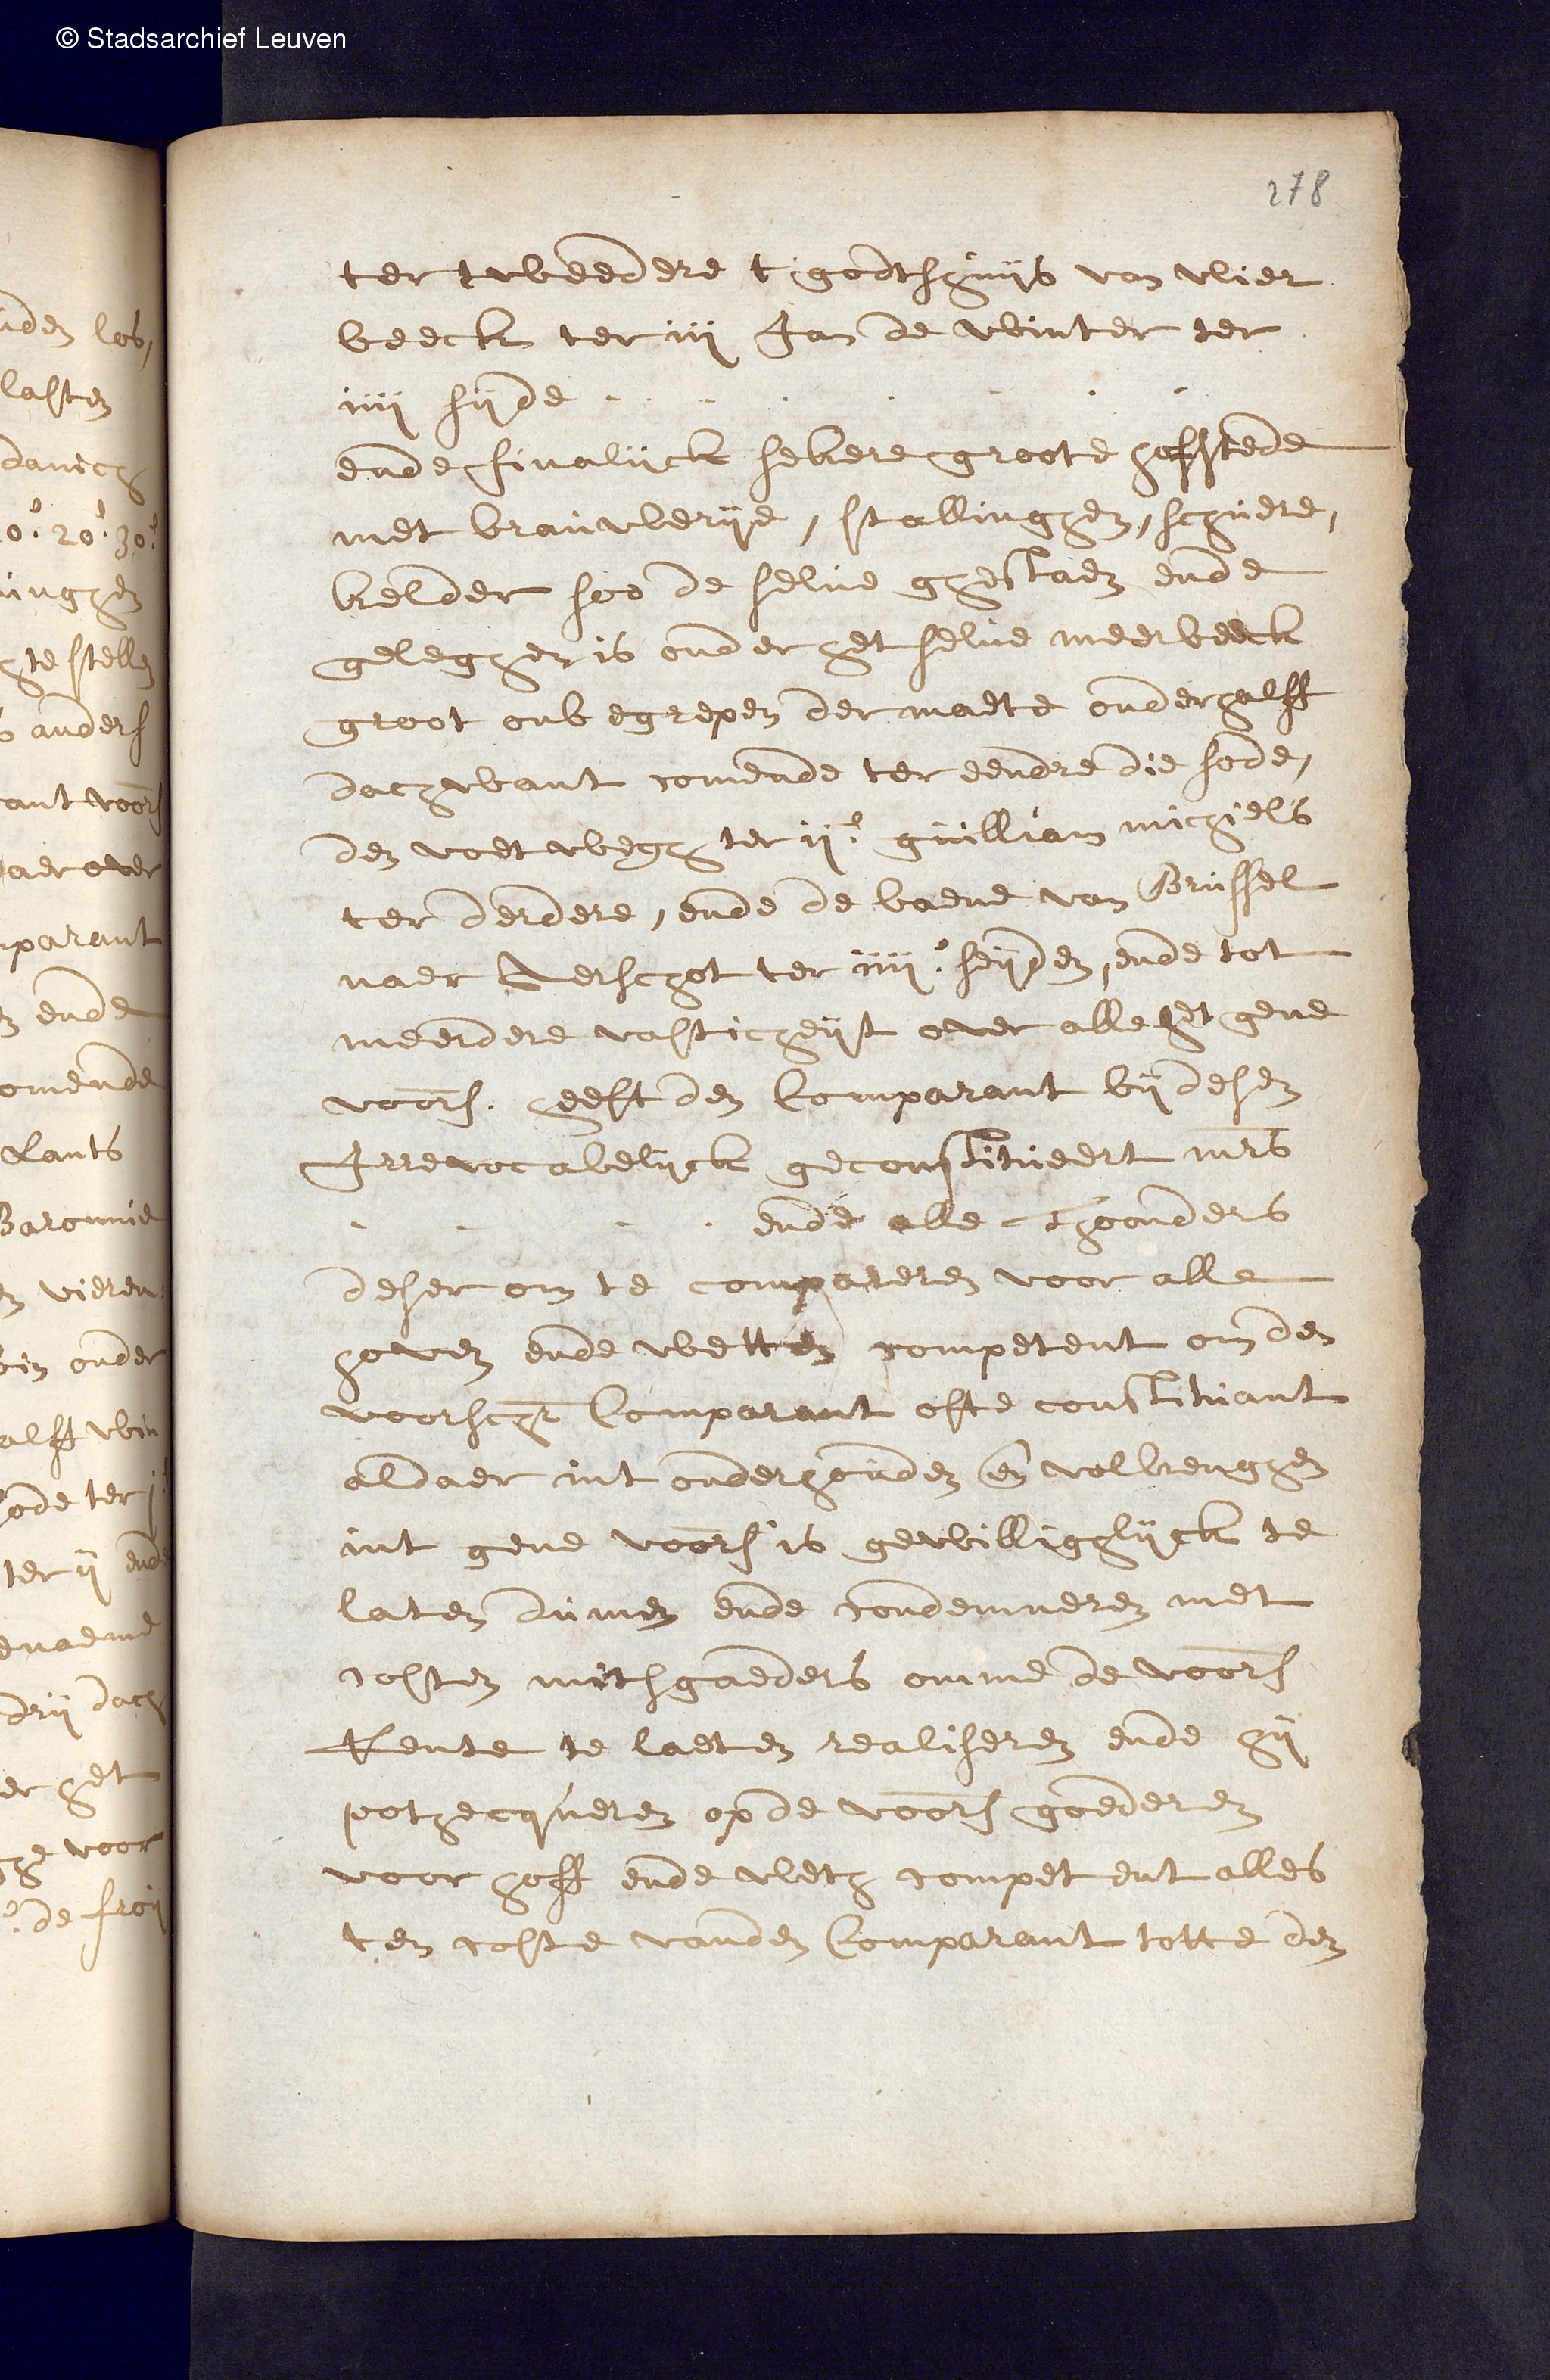 © Stadsarchief Leuven
278
ter tweedere t'godtshuijs van vlier
beeck ter iij Jan de winter ter
iiij sijde
ende finalijck sekere groote hoffstede
met brauwerije, stallinghen, schuere,
kelder soo de selue ghestaen ende
geleghen is onder het selue meerbeeck
groot onbegrepen der maete onderhalff
dachwant comende ter eendre die sode,
den voetwegh ter ij.e guilliam michiels
ter derdere, ende de baene van Brussel
naer Aerschot ter iiij.e seijden, ende tot
meerdere vasticheijt over alle het gene
voors. heeft den Comparant bij desen
Irrevocabelijck geconstitueert mrs
ende alle Thoonders
deser om te compareren voor alle
hoven ende wetten competent om den
voorschr Comparant ofte constituant
aldaer int onderhouden en volbrenghen
int gene voors is gewillighlijck te
laten dumen ende condemneren met
costen mitsgaeders omme de voors
Rente te laeten realiseren ende hij
pothecqueren op de voors goederen
voor hoff ende weth competent alles
ten coste vanden Comparant totte den
iden los,
lasten
danich
0.e 20.e 30.e
inghen
hte stellen
anders
ant voors
aer over
parant
ende
omende
Lants
Baronnie
vieren
in onder
alff win
ode ter j
ter ij ende
enaeme
drij dach
er het
ghe voor
de froij